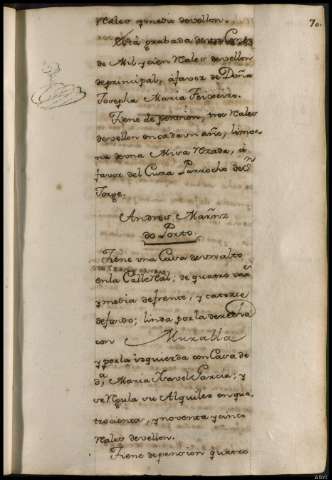 70.
Reales y medio de vellon.
Está grabada de un Censo
de Mil y cien Reales de vellon
de principal, á favor de Doña
Josepha Maria Feixeira.
Tiene de pension, tres Reales
de vellon en cada un año, limos
na de una Misa Rezada, á
favor del Cura Parrocho de Sn
Jorge.
Andres Marñz
do Porto.
Tiene una Casa de un alto
en la Calle Ral, de quatro vars
y media de frente, y catorze
de fondo; linda por la derecha
con Muralla
y por la izquierda con Casa de
da Maria Garcia; y
se Regula su Alquiler en qua
trocientos, y noventa y cinco
Reales de vellon.
Tiene de pension quatro